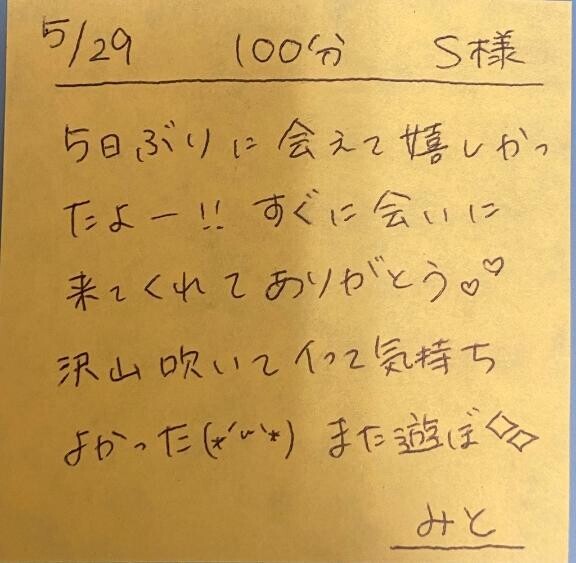 5/29 100分 S様
5日ぶりに会えて嬉しかっ
たよー!! すぐに会いに
来てくれてありがとう♡♡
沢山吹いてイって気持ち
よかった(*´ω`*) また遊ぼ
みと